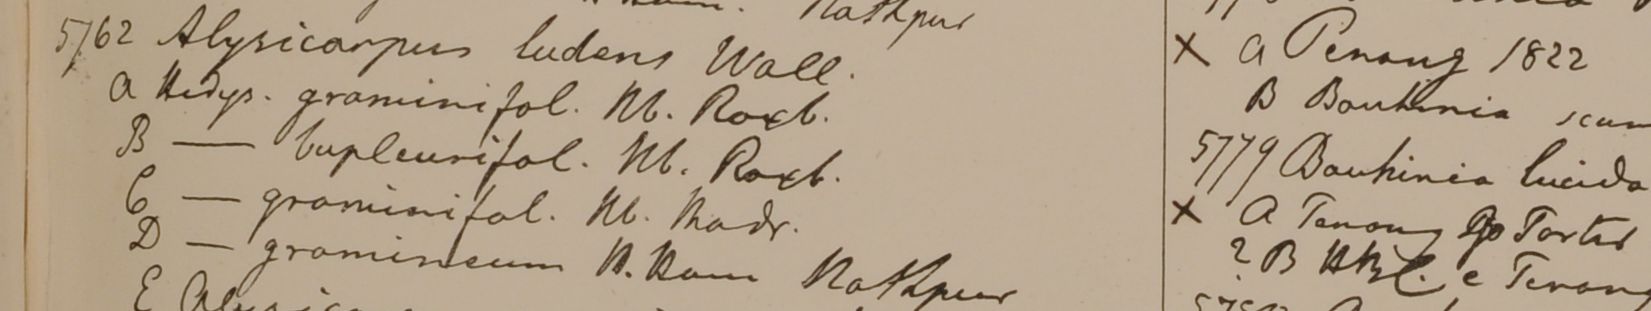 Nathpur
5762 Alysicarpus ludens Wall.
a Hedys. graminifol. Hb. Roxb.
B — bupleurifol. Hb. Roxb.
C — graminifol. Hb. Madr.
D — gramineum H. Ham Nathpur
E
X a Penang 1822
B Bauhinia scan
5779 Bauhinia lucida
X a Penang Porter
? B e Penang